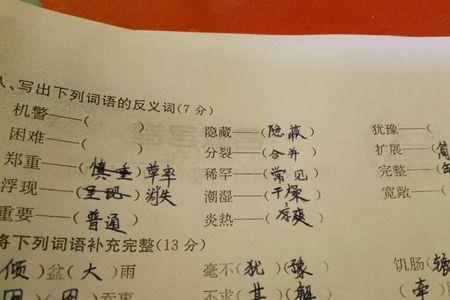 、写出下列词语的反义词(7 分)
机警——( ) 隐藏——(隐蔽) 犹豫——(
困难——( ) 分裂——(合并) 扩展——(
郑重——(慎重) 草率 稀罕——(常见) 完整——(
浮现——(呈现) 消失 潮湿——(干燥) 宽敞——(
重要——(普通) 炎热——(凉爽)
将下列词语补充完整(13 分)
倾)盆(大)雨 毫不(犹)(豫) 饥肠(辘
吞枣 不求(其)( (牵